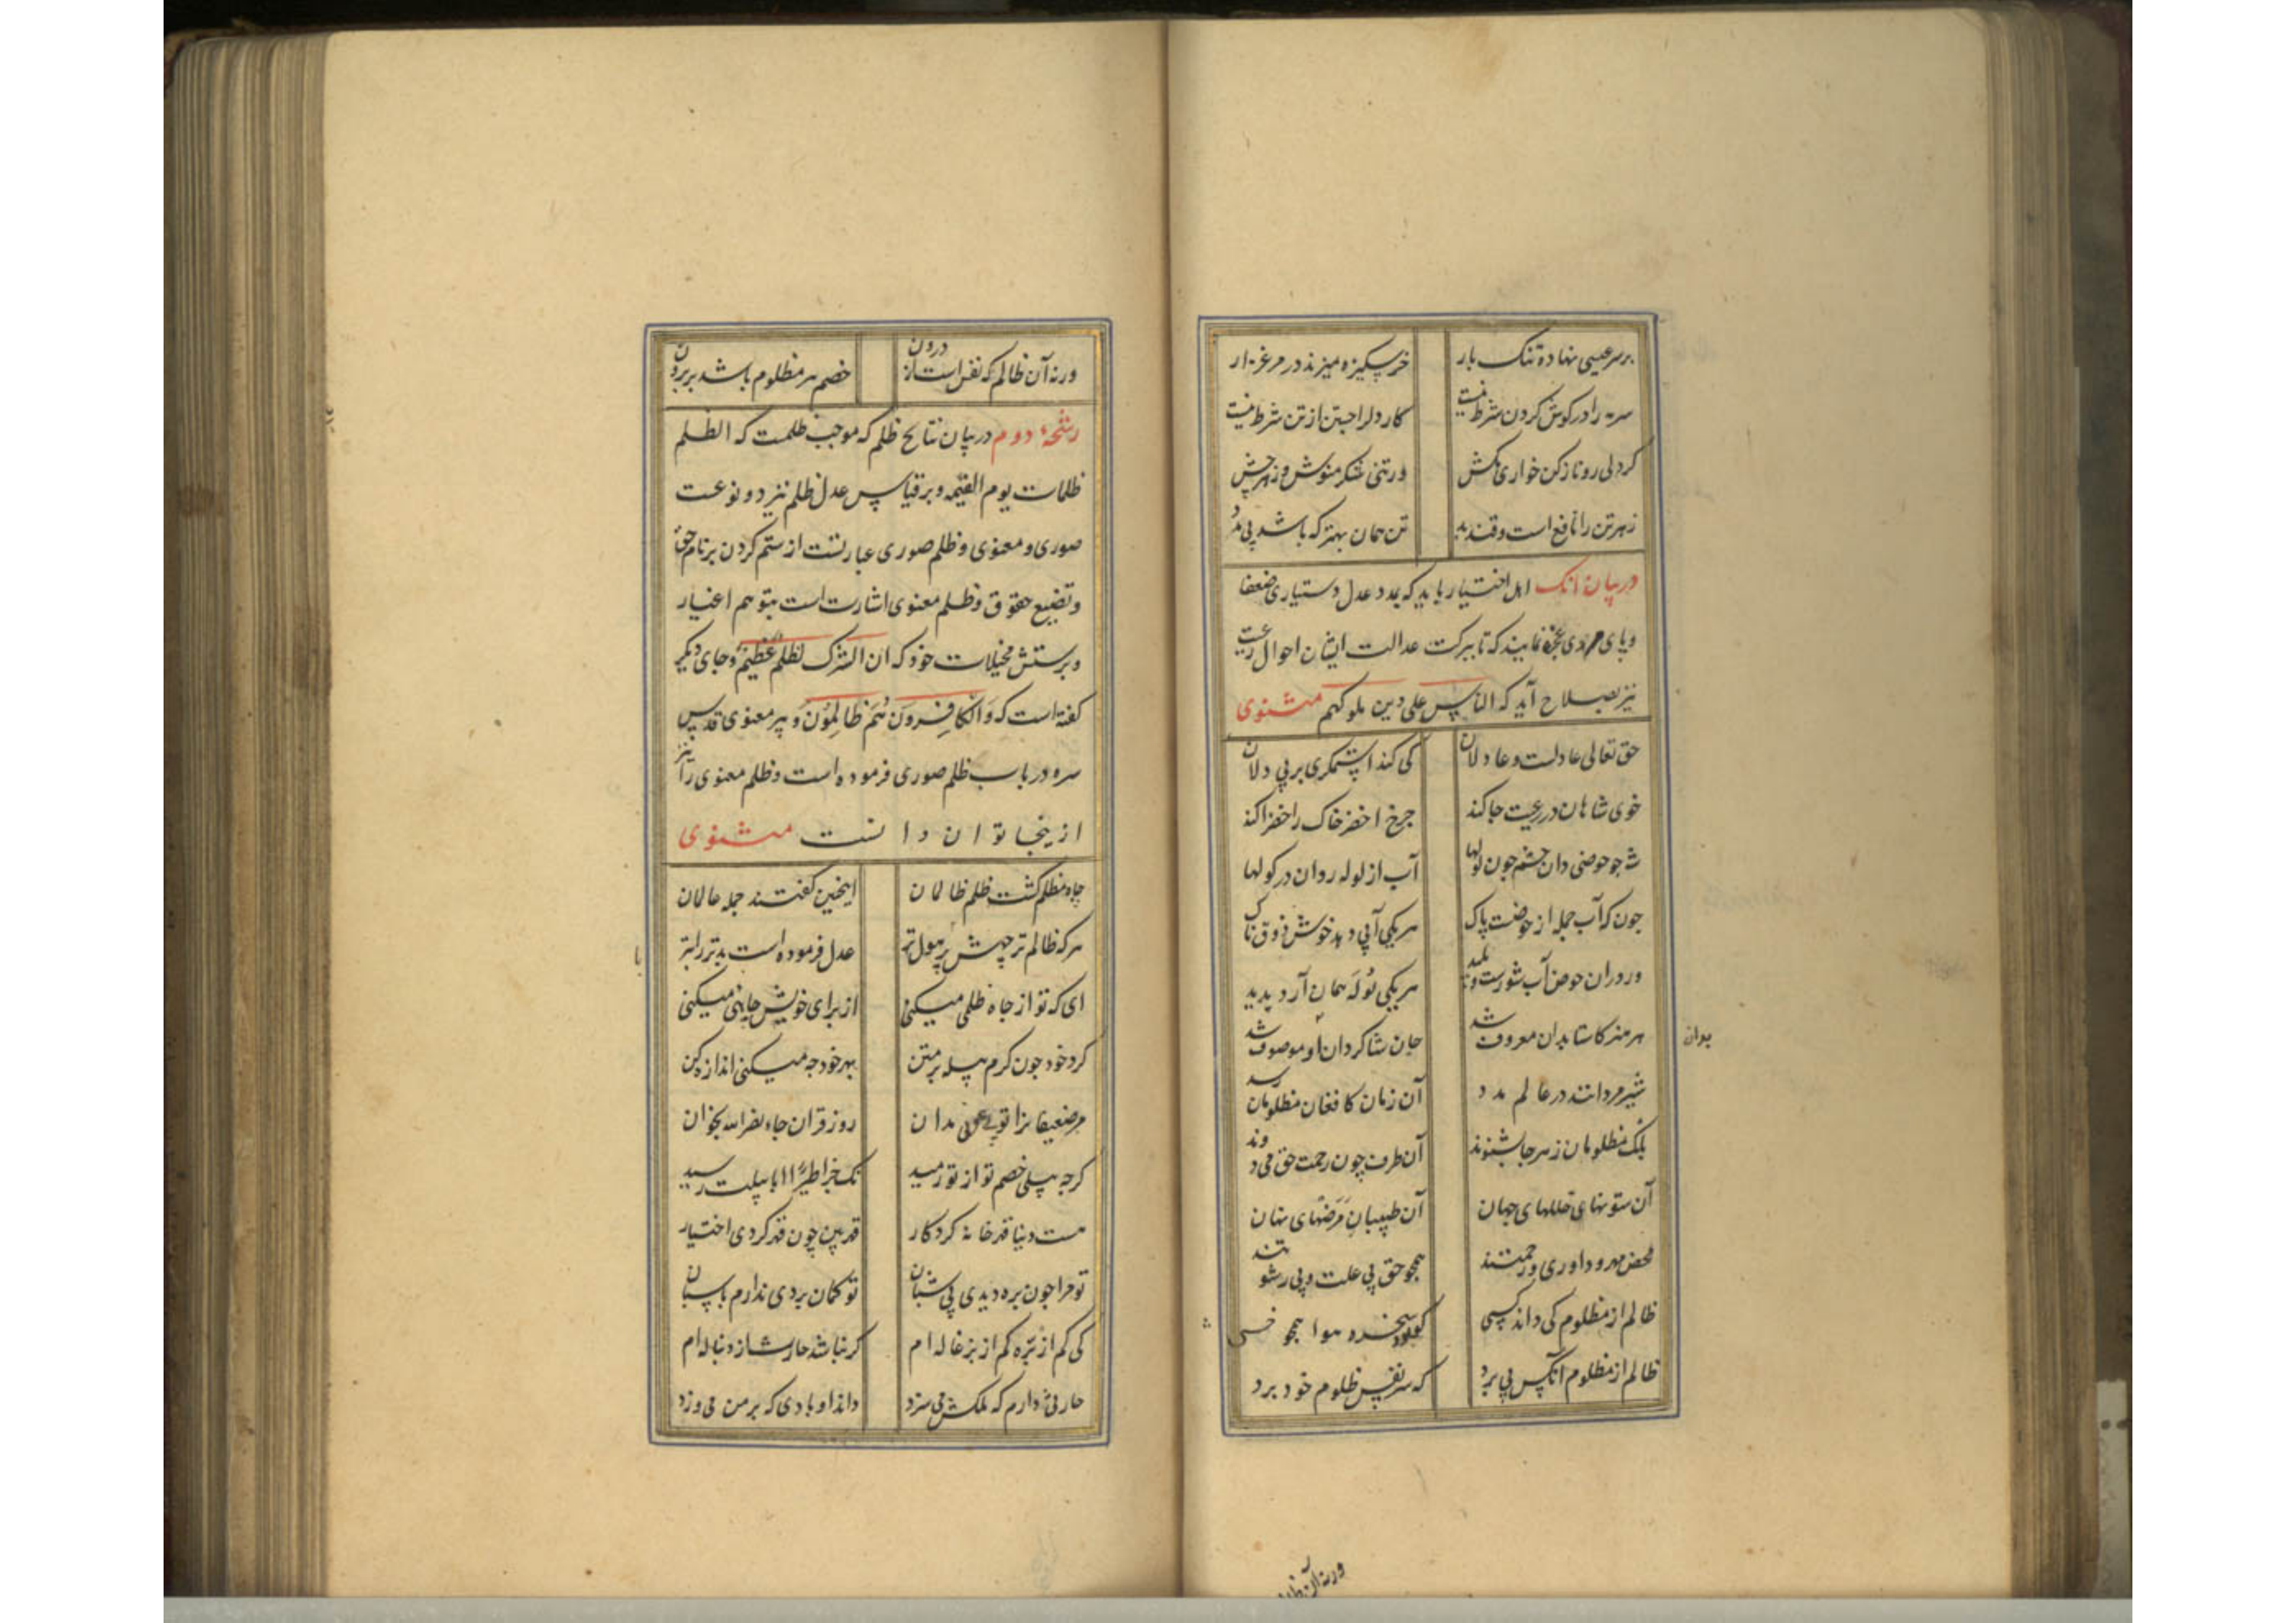 بر سر عیسی نهاده تنک بار خر سکیزه میزند در مرغزار
سرمه را در کوش کردن شرط نیست کار دل را جستن از تن شرط نیست
کر دلی رو ناز کن خواری مکش ور تنی شکر منوش و زهر چش
زهر تن را نافع است و قند بد تن همان بهتر که باشد بی مدد
در بیان انک اهل اختیار باید که بمدد عدل دستیاری ضعفا
و پای مردی عجزه نمایند که تا ببرکت عدالت ایشان احوال رعیت
نیز بصلاح آید که الناس علی دین ملوکهم مثنوی
حق تعالی عادلست و عادلان کی کند استمکری بر بی دلان
خوی شاهان در رعیت جا کند چرخ اخضر خاک را خضرا کند
شه چو حوضی دان حشم چون لولها آب از لوله روان در کولها
چون که آب جمله از حوضست پاک هر یکی آبی دهد خوش ذوق ناک
ور در آن حوض آب شورست و پلید هر یکی لوله همان آرد پدید
هر هنر کاستا بدان معروف شد جان شاکردان او موصوف شد
شیر مردانند در عالم مدد آن زمان کافغان مظلومان رسد
بانک مظلومان ز هر جا بشنوند آن طرف چون رحمت حق می دوند
آن ستونهای خللهای جهان آن طبیبان مرضهای نهان
محض مهر و داوری و رحمتند همچو حق بی علت و بی رشوتند
ظالم از مظلوم کی داند کسی کو بود سخره هوا همچو خسی
ظالم از مظلوم انکس پی برد که سر نفس ظلوم خود برد
بدان
ورنه آن ظالم
ورنه آن ظالم که نفس است از درون خصم هر مظلوم باشد بر برون
رشحهٔ دوم در بیان نتایج ظلم که موجب ظلمت که الظلم
ظلمات یوم القیمه و بر قیاس عدل ظلم نیز دو نوعست
صوری و معنوی و ظلم صوری عبارتست از ستم کردن بر نامحق
و تضییع حقوق و ظلم معنوی اشارت است بتوهم اغیار
و پرستش مخیلات خود که ان الشرک لظلم عظیم و جای دیکر
کفته است که وَالکافِرونَ هُمُ ظالِمُوَن و پیر معنوی قدس
سره در باب ظلم صوری فرموده است و ظلم معنوی را نیز
از ینجا توان دانست مثنوی
چاه مظلم کشت ظلم ظالمان اینچنین کفتند جمله عالمان
هر که ظالم تر چهش پر هول تر عدل فرموده است بدتر را بتر
ای که تو از جاه ظلمی میکنی از برای خویش چاهی میکنی
کرد خود چون کرم پیله بر متن بهر خود چه میکنی اندازه کن
مر ضعیفانرا تو بی عونی مدان روز قران جاء نصر الله بخوان
کر چه پیلی خصم تو از تو رمید نک جزا طیرًا ابابیلت رسید
هست دنیا قهرخانه کردکار قهر بین چون قهر کردی اختیار
تو مرا چون بره دیدی بی شبان تو کمان بردی ندارم پاسبان
کی کم از برّه کم از بزغاله ام کر نباشد حارث از دنباله ام
حارثی دارم که ملکش می سزد داند او بادی که بر من می وزد